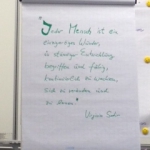 "Jeder Mensch ist ein
einzigartiges Wunder,
in ständiger Entwicklung
begriffen und fähig,
kontinuierlich zu wachsen,
sich zu verändern und
zu lernen."
Virginia Satir